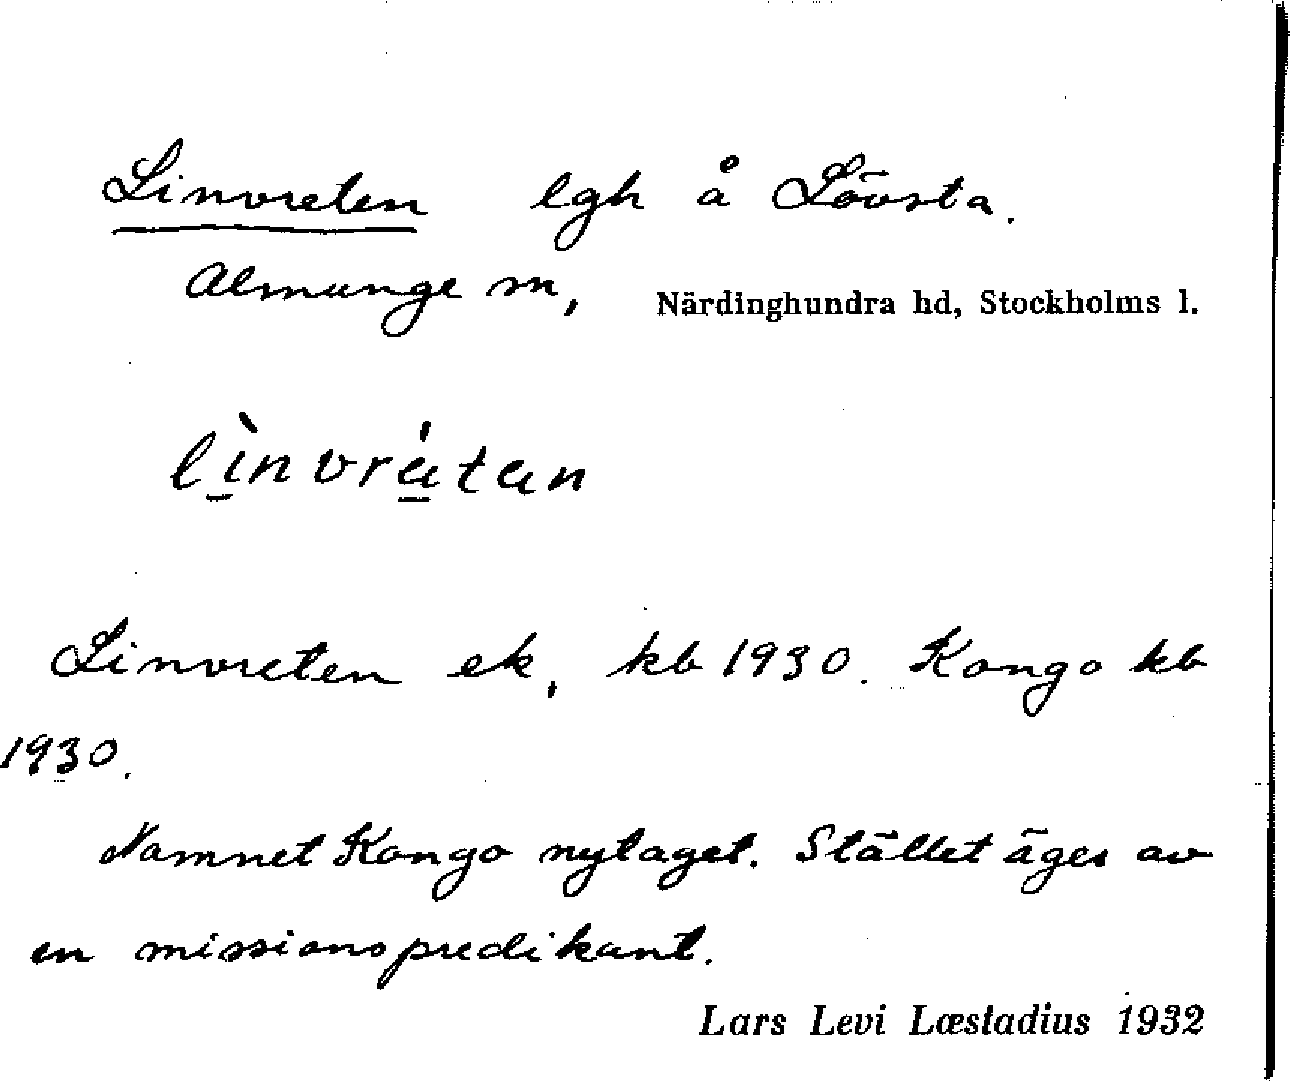 Linvreten lgh å Lövsta.
Almunge sn, Närdinghundra hd, Stockholms l.
lìnvrátan
Linvreten ek, kb 1930. Kongo kb
1930.
Namnet Kongo nytaget. Stället äges av
en missionspredikant.
Lars Levi Læstadius 1932